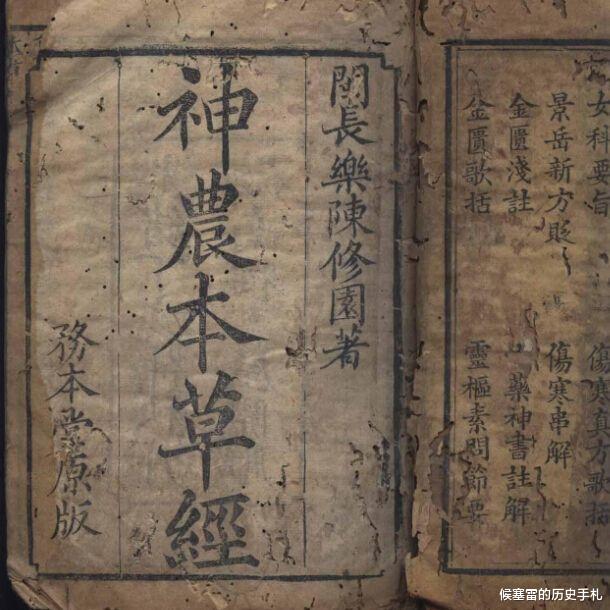 女科要旨 傷寒真方歌括
景岳新方貶 傷寒串解
金匱淺註 藥神書註解
金匱歌括 靈樞素問節要
閩長樂陳修園著
神農本草經
務本堂原版
候塞雷的历史手札